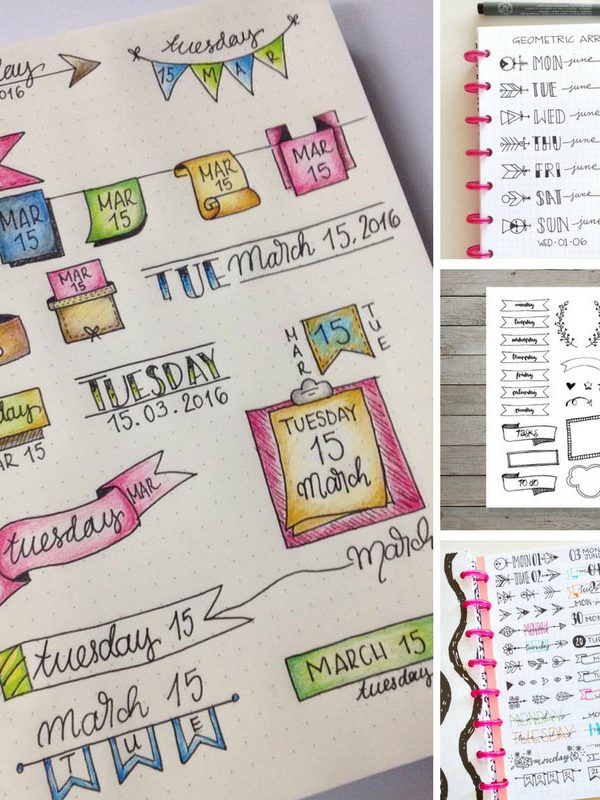 2016
tuesday
15 MAR
MAR
15
MAR
15
MAR
15
MAR
15
MAR
15
TUE March 15, 2016
TUESDAY
15.03.2016
MAR
15
TUE
AR 15
TUESDAY
15
March
tuesday MAR
March
tuesday 15
MARCH 15
tuesday
March 15
TUE
GEOMETRIC ARR
MON june
TUE june
WED june
THU june
FRI june
SAT june
SUN june
WED-01-06
monday
tuesday
wednesday
thursday
friday
saturday
sunday
TASKS
TO DO
MON 01
TUE 02
03 MON
JUNE
MONDAY
30 MON
tuesday
20 TUE
MONDAY
TUESDAY
monday